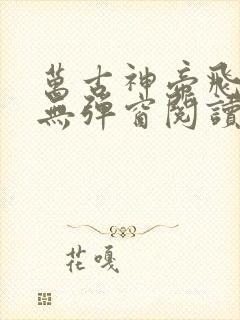 萬古神帝飛
無彈窗閱讀
花嘎